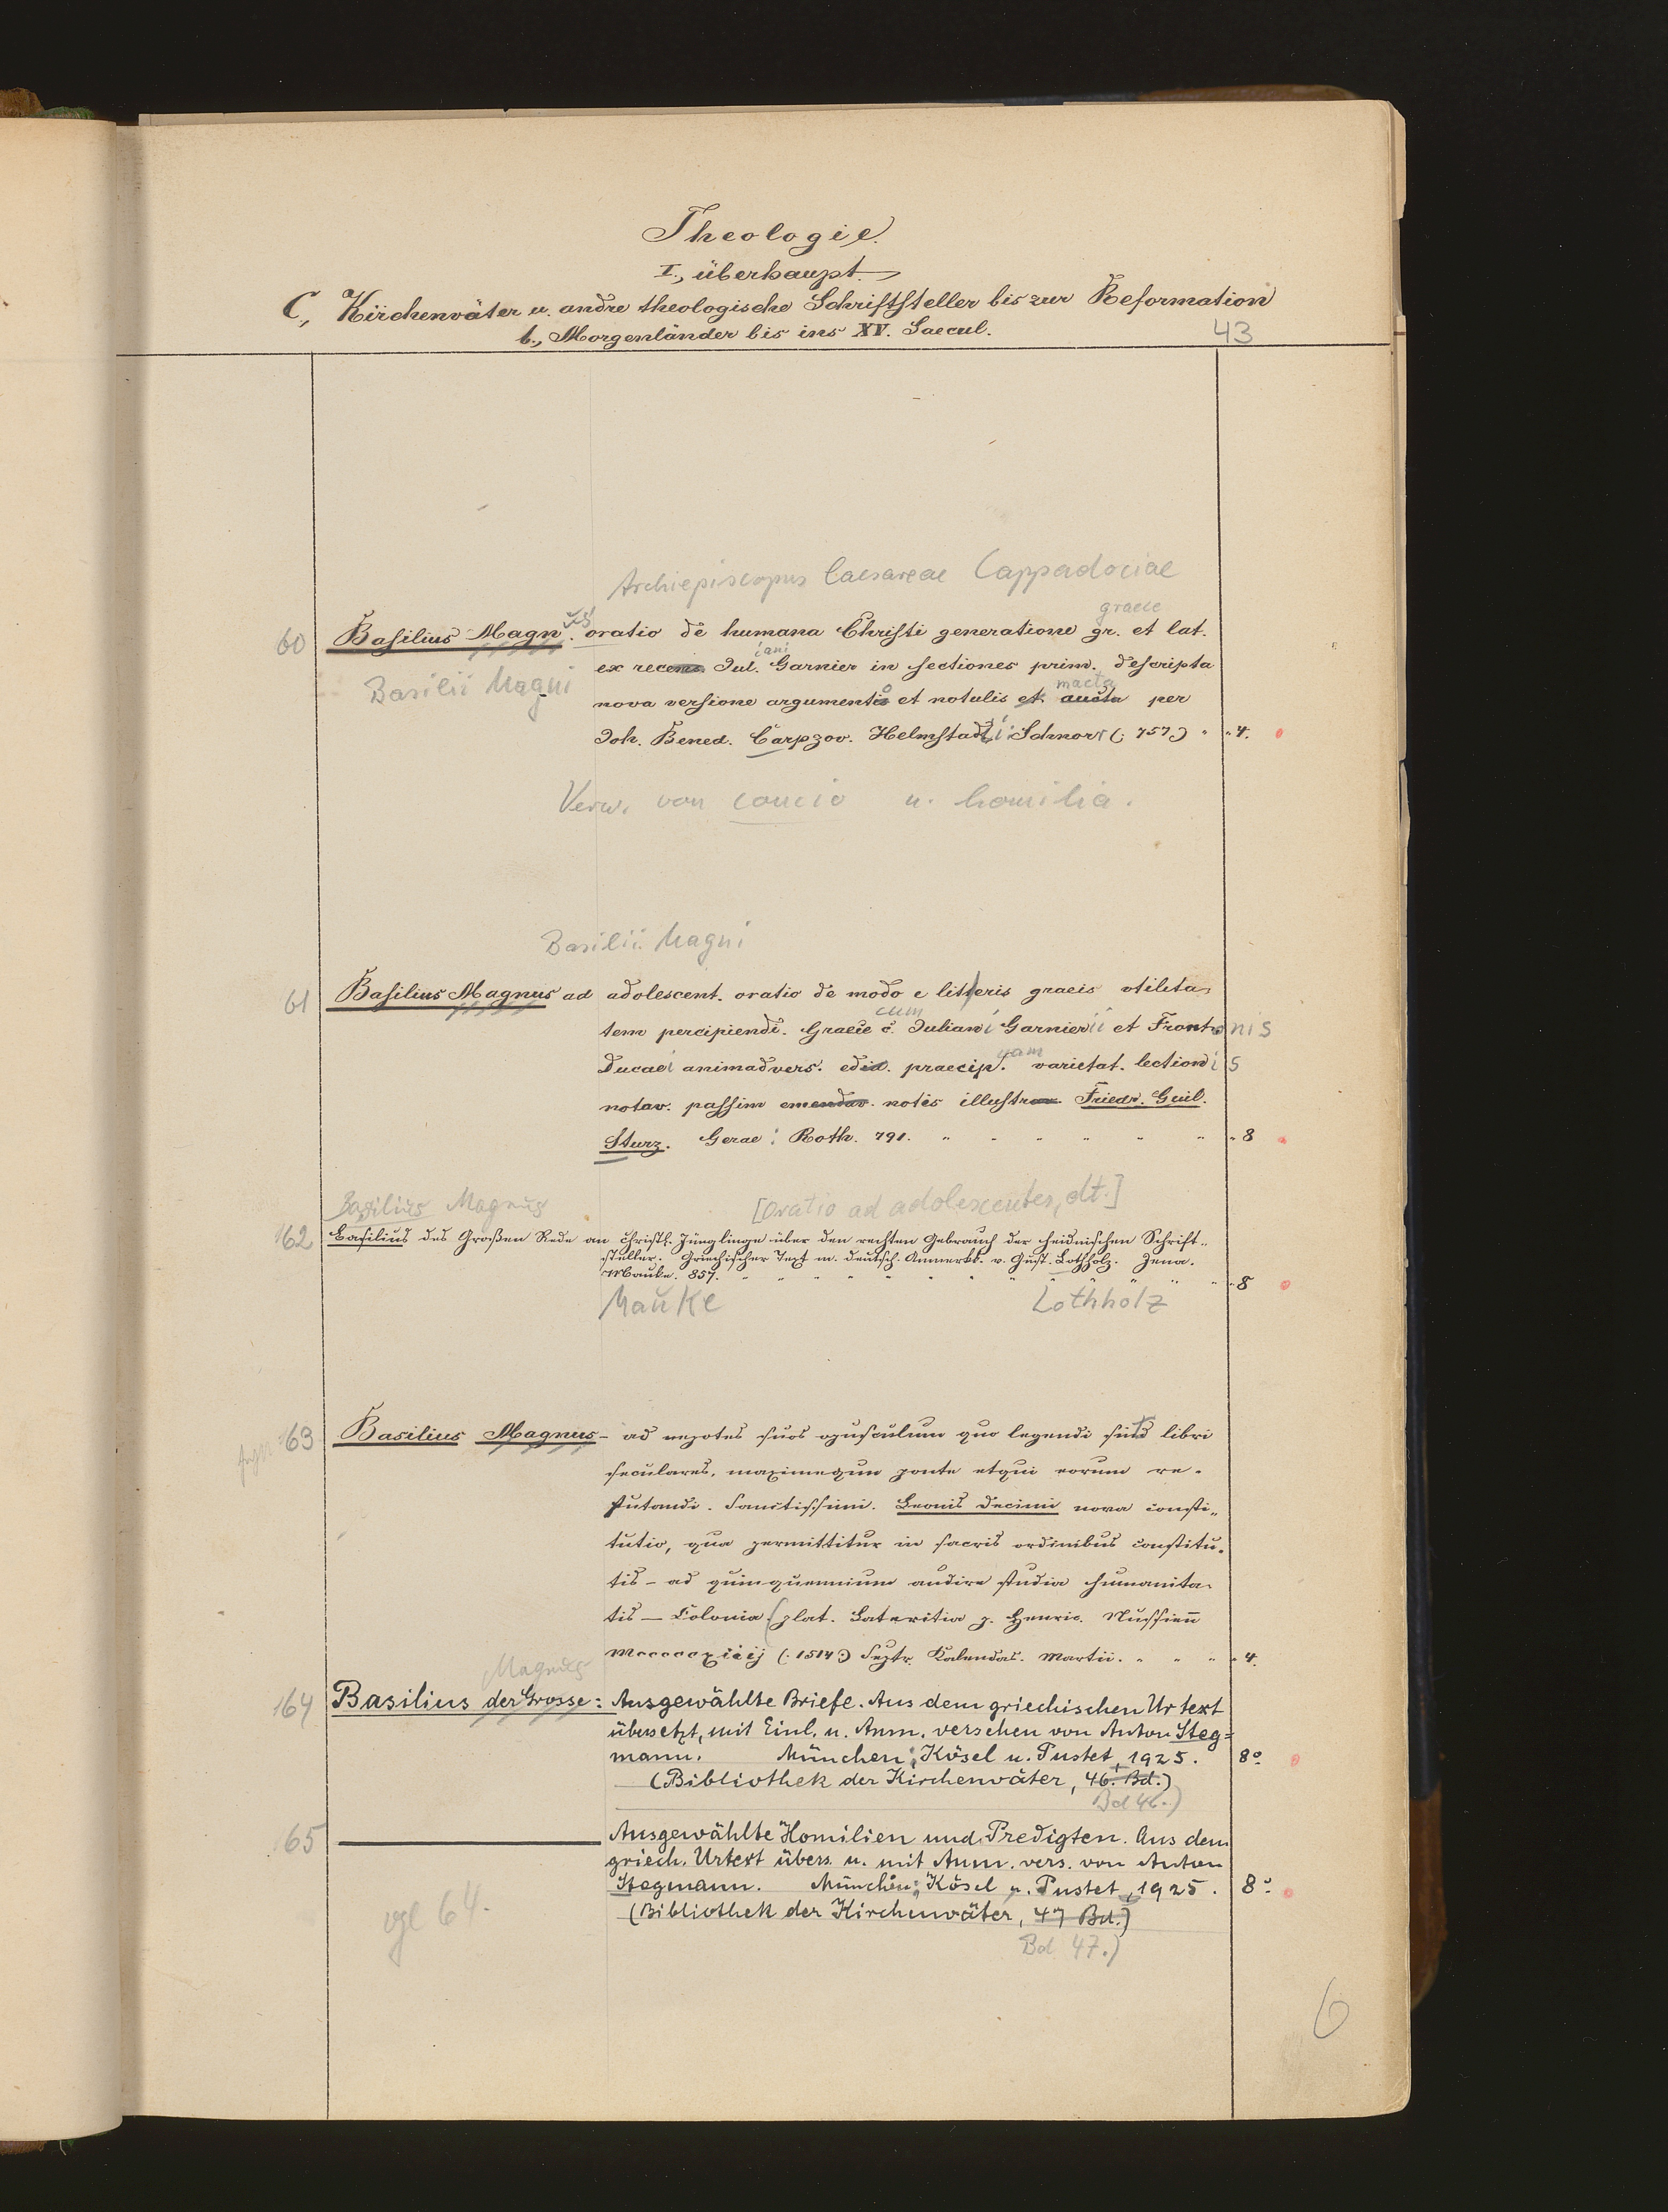 Theologie.
I., überhaupt.
C., Kirchenväter u. andre theologische Schriftsteller bis zur Reformation
b., Morgenländer bis ins XV. Saecul.
43
Archiepiscopus Caesareae Cappadociae
graece
60 Basilius Magn. us oratio de humana Christi generatione gr. et lat.
iani
ex recens. Jul. Garnier in sectiones prim. descripta
Basilii Magni
macta
nova versione argumentis et notulis et. aucta per
Joh. Bened. Carpzov. Helmstadii: Schnorr (: 757) " " 4.
Verw. von concio u. homilia.
Basilii Magni
61 Basilius Magnus ad adolescent. oratio de modo e litteris graeis utilita-
cum
tem percipiendi. Graece c. Juliani Garnierii et Frontonis
quam
Ducaei animadvers. edid. praecip. varietat. lectionis
notav. passim emendav. notis illustrav. Friedr. Guil.
Sturz. Gerae: Roth. 791. " " " " " " " 8
Basilius Magnus [Oratio ad adolescentes, dt.]
62 Basilius des Großen Rede an christl. Jünglinge über den rechten Gebrauch der heidnischen Schrift-
steller. Griechischer Text m. deutsch. Anmerkk. v. Gust. Lothholz. Jena.
Mauke. 857. " " " " " " " " " 8
Mauke Lothholz
63 Basilius Magnus - ad nepotes suos opusculum quo legendi sint libri
seculares, maximequue
tutio, qua permittitur in sacris ordinibus constitu-
tis - ad quinquennium audire studia humanita-
tis — Colonia (plat. Lateritia p. Henric.
(: 1514:) Septr. Kalendas. Martii. " " " " 4.
Magnus
164 Basilius der Grosse: Ausgewählte Briefe. Aus dem griechischen Urtext
übersetzt, mit Einl. u. Anm. versehen von Anton Steg=
mann. München: Kösel u. Pustet, 1925. 8°
(Bibliothek der Kirchenväter, 46. Bd.)
Bd 46.)
165 Ausgewählte Homilien und Predigten. Aus dem
griech. Urtext übers. u. mit Anm. vers. von Anton
Stegmann. München: Kösel u. Pustet, 1925. 8°
(Bibliothek der Kirchenväter, 47 Bd.)
vgl 64.
Bd 47.)
6